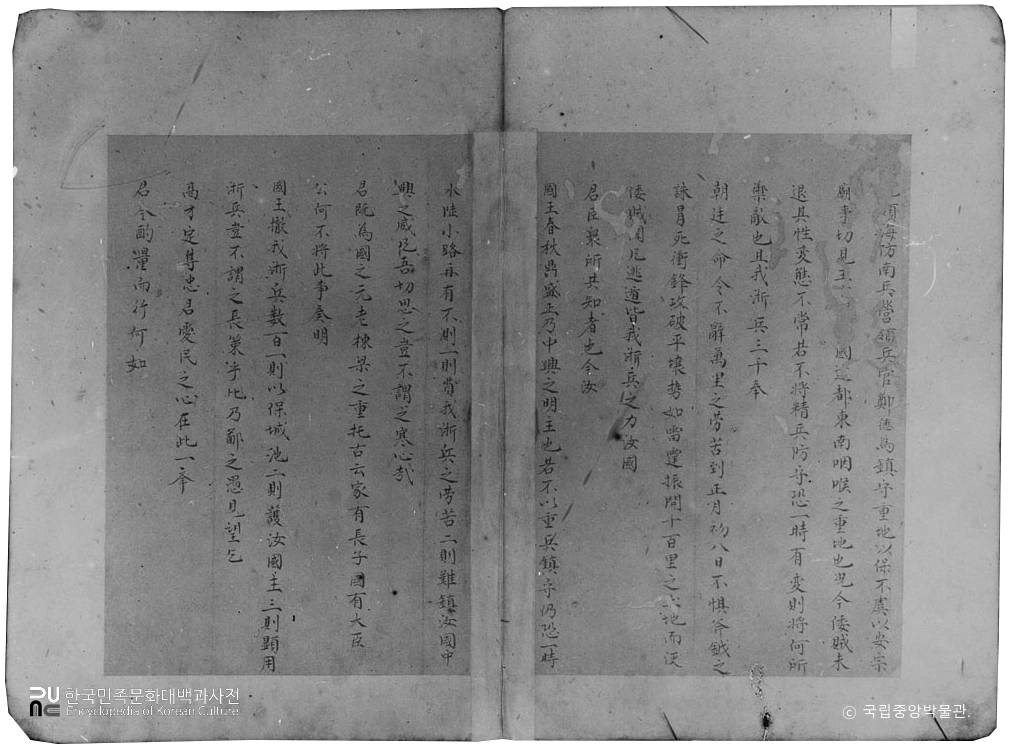 須海防南兵營領兵官鄭德爲鎮守重地以保不虞以安宗
廟事切見王 國逕都東南咽喉之重地也況今倭賊未
退其性変態不常若不將精兵防守恐一時有変則將何所
禦敵也且我浙兵三千奉
朝廷之命令不辭萬里之勞苦到正月初八日不惧斧鉞之
誅冒死衝鋒攻破平壤势如雷霆振開千百里之 地而使
倭賊聞風逃遁皆我浙兵之力汝國
君臣衆所共知者也今汝
國王春秋鼎盛正乃中興之明主也若不以重兵鎮守仍恐一時
水陸小路再有 不則一則背我浙兵之劳苦二則難鎮汝國中
興之 吾切思之豈不謂之寒心哉
君既爲國之元老棟梁之重托古云家有長子國有大臣
公何不將此事奏明
國王撤我浙兵數百一則以保城池二則護汝國主三則顕用
浙兵豈不謂之長策乎此乃鄙之愚見望乞
高才定尊忠君愛民之心在此一 
君令酌量而行何如
한국민족문화대백과사전
Encyclopedia of Korean Culture
© 국립중앙박물관.